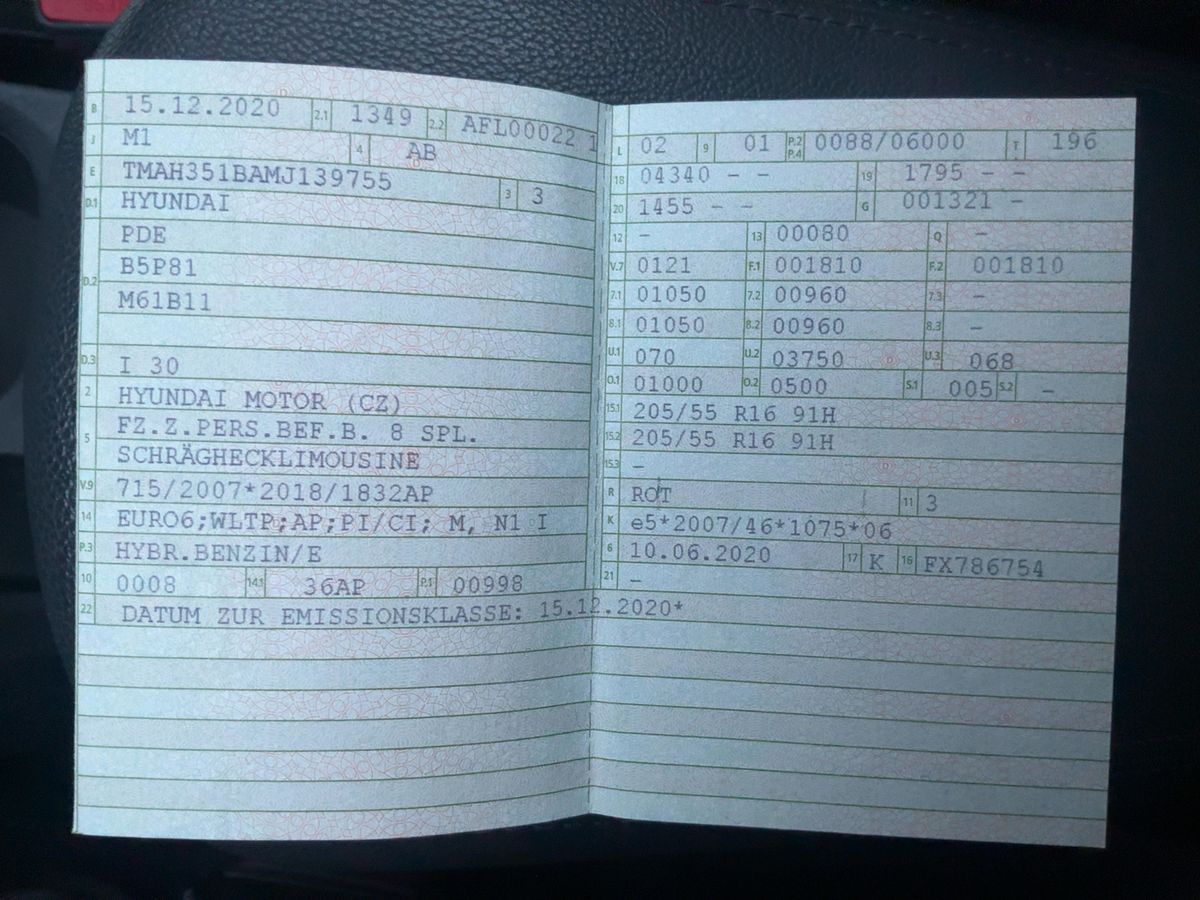 B 15.12.2020 2.1 1349 2.2 AFL00022 1
J M1 4 AB
E TMAH351BAMJ139755 3 3
D.1 HYUNDAI
PDE
D.2 B5P81
M61B11
D.3 I 30
2 HYUNDAI MOTOR (CZ)
5 FZ.Z.PERS.BEF.B. 8 SPL.
SCHRÄGHECKLIMOUSINE
V.9 715/2007*2018/1832AP
14 EURO6;WLTP;AP;PI/CI; M, N1 I
P.3 HYBR.BENZIN/E
10 0008 14.1 36AP P.1 00998
22 DATUM ZUR EMISSIONSKLASSE: 15.12.2020*
L 02 9 01 P.2 P.4 0088/06000 T 196
18 04340 – – 19 1795 – –
20 1455 – – G 001321 –
12 – 13 00080 Q –
V.7 0121 F.1 001810 F.2 001810
7.1 01050 7.2 00960 7.3 –
8.1 01050 8.2 00960 8.3 –
U.1 070 U.2 03750 U.3 068
O.1 01000 O.2 0500 S.1 005 S.2 –
15.1 205/55 R16 91H
15.2 205/55 R16 91H
15.3 –
R ROT 11 3
K e5*2007/46*1075*06
6 10.06.2020 17 K 16 FX786754
21 –